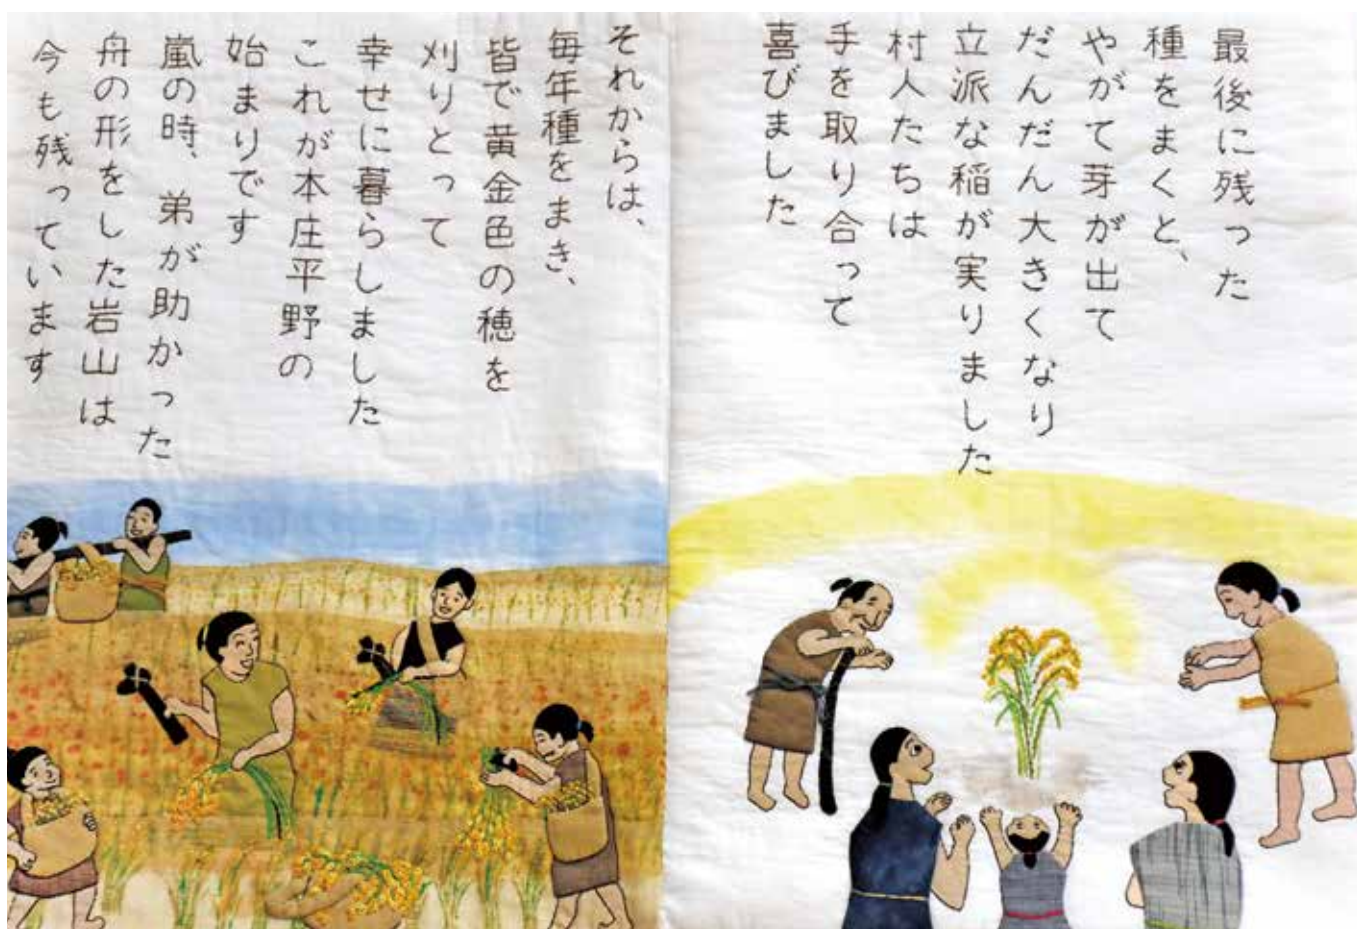 最後に残った
種をまくと、
やがて芽が出て
だんだん大きくなり
立派な稲が実りました
村人たちは
手を取り合って
喜びました
それからは、
毎年種をまき、
皆で黄金色の穂を
刈りとって
幸せに暮らしました
これが本庄平野の
始まりです
嵐の時、弟が助かった
舟の形をした岩山は
今も残っています